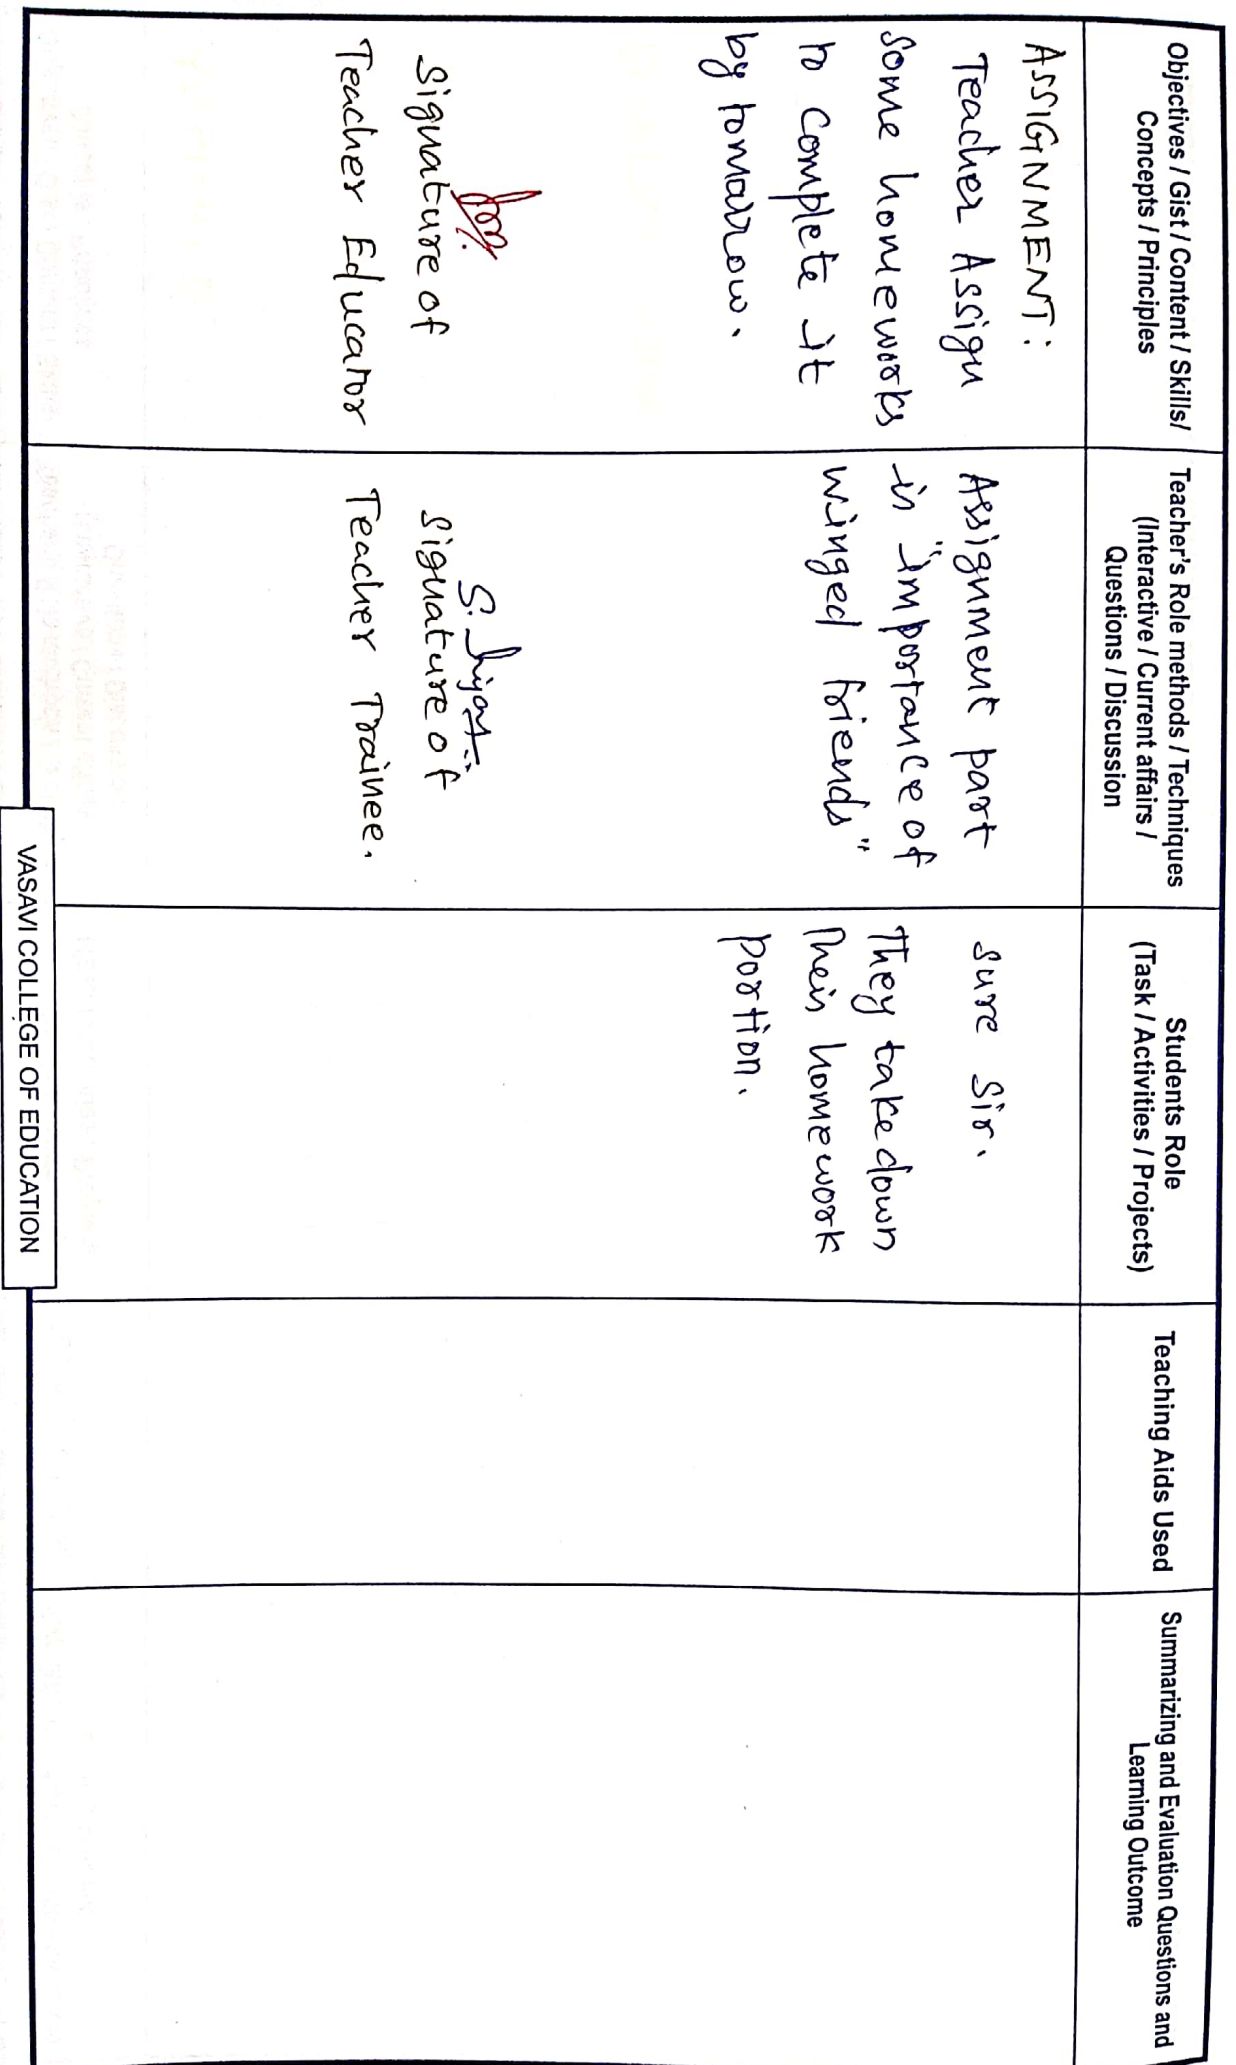 Objectives / Gist / Content / Skills/
Concepts / Principles
Teacher's Role methods / Techniques
(Interactive / Current affairs /
Questions / Discussion
Students Role
(Task / Activities / Projects)
Teaching Aids Used
Summarizing and Evaluation Questions and
Learning Outcome
ASSIGNMENT:
Teacher Assign
some homeworks
to complete it
by tomarrow.
Signature of
Teacher Educator
Assignment part
is "importance of
winged friends"
S.
Signature of
Teacher Trainee.
Sure Sir.
They take down
their homework
portion.
VASAVI COLLEGE OF EDUCATION